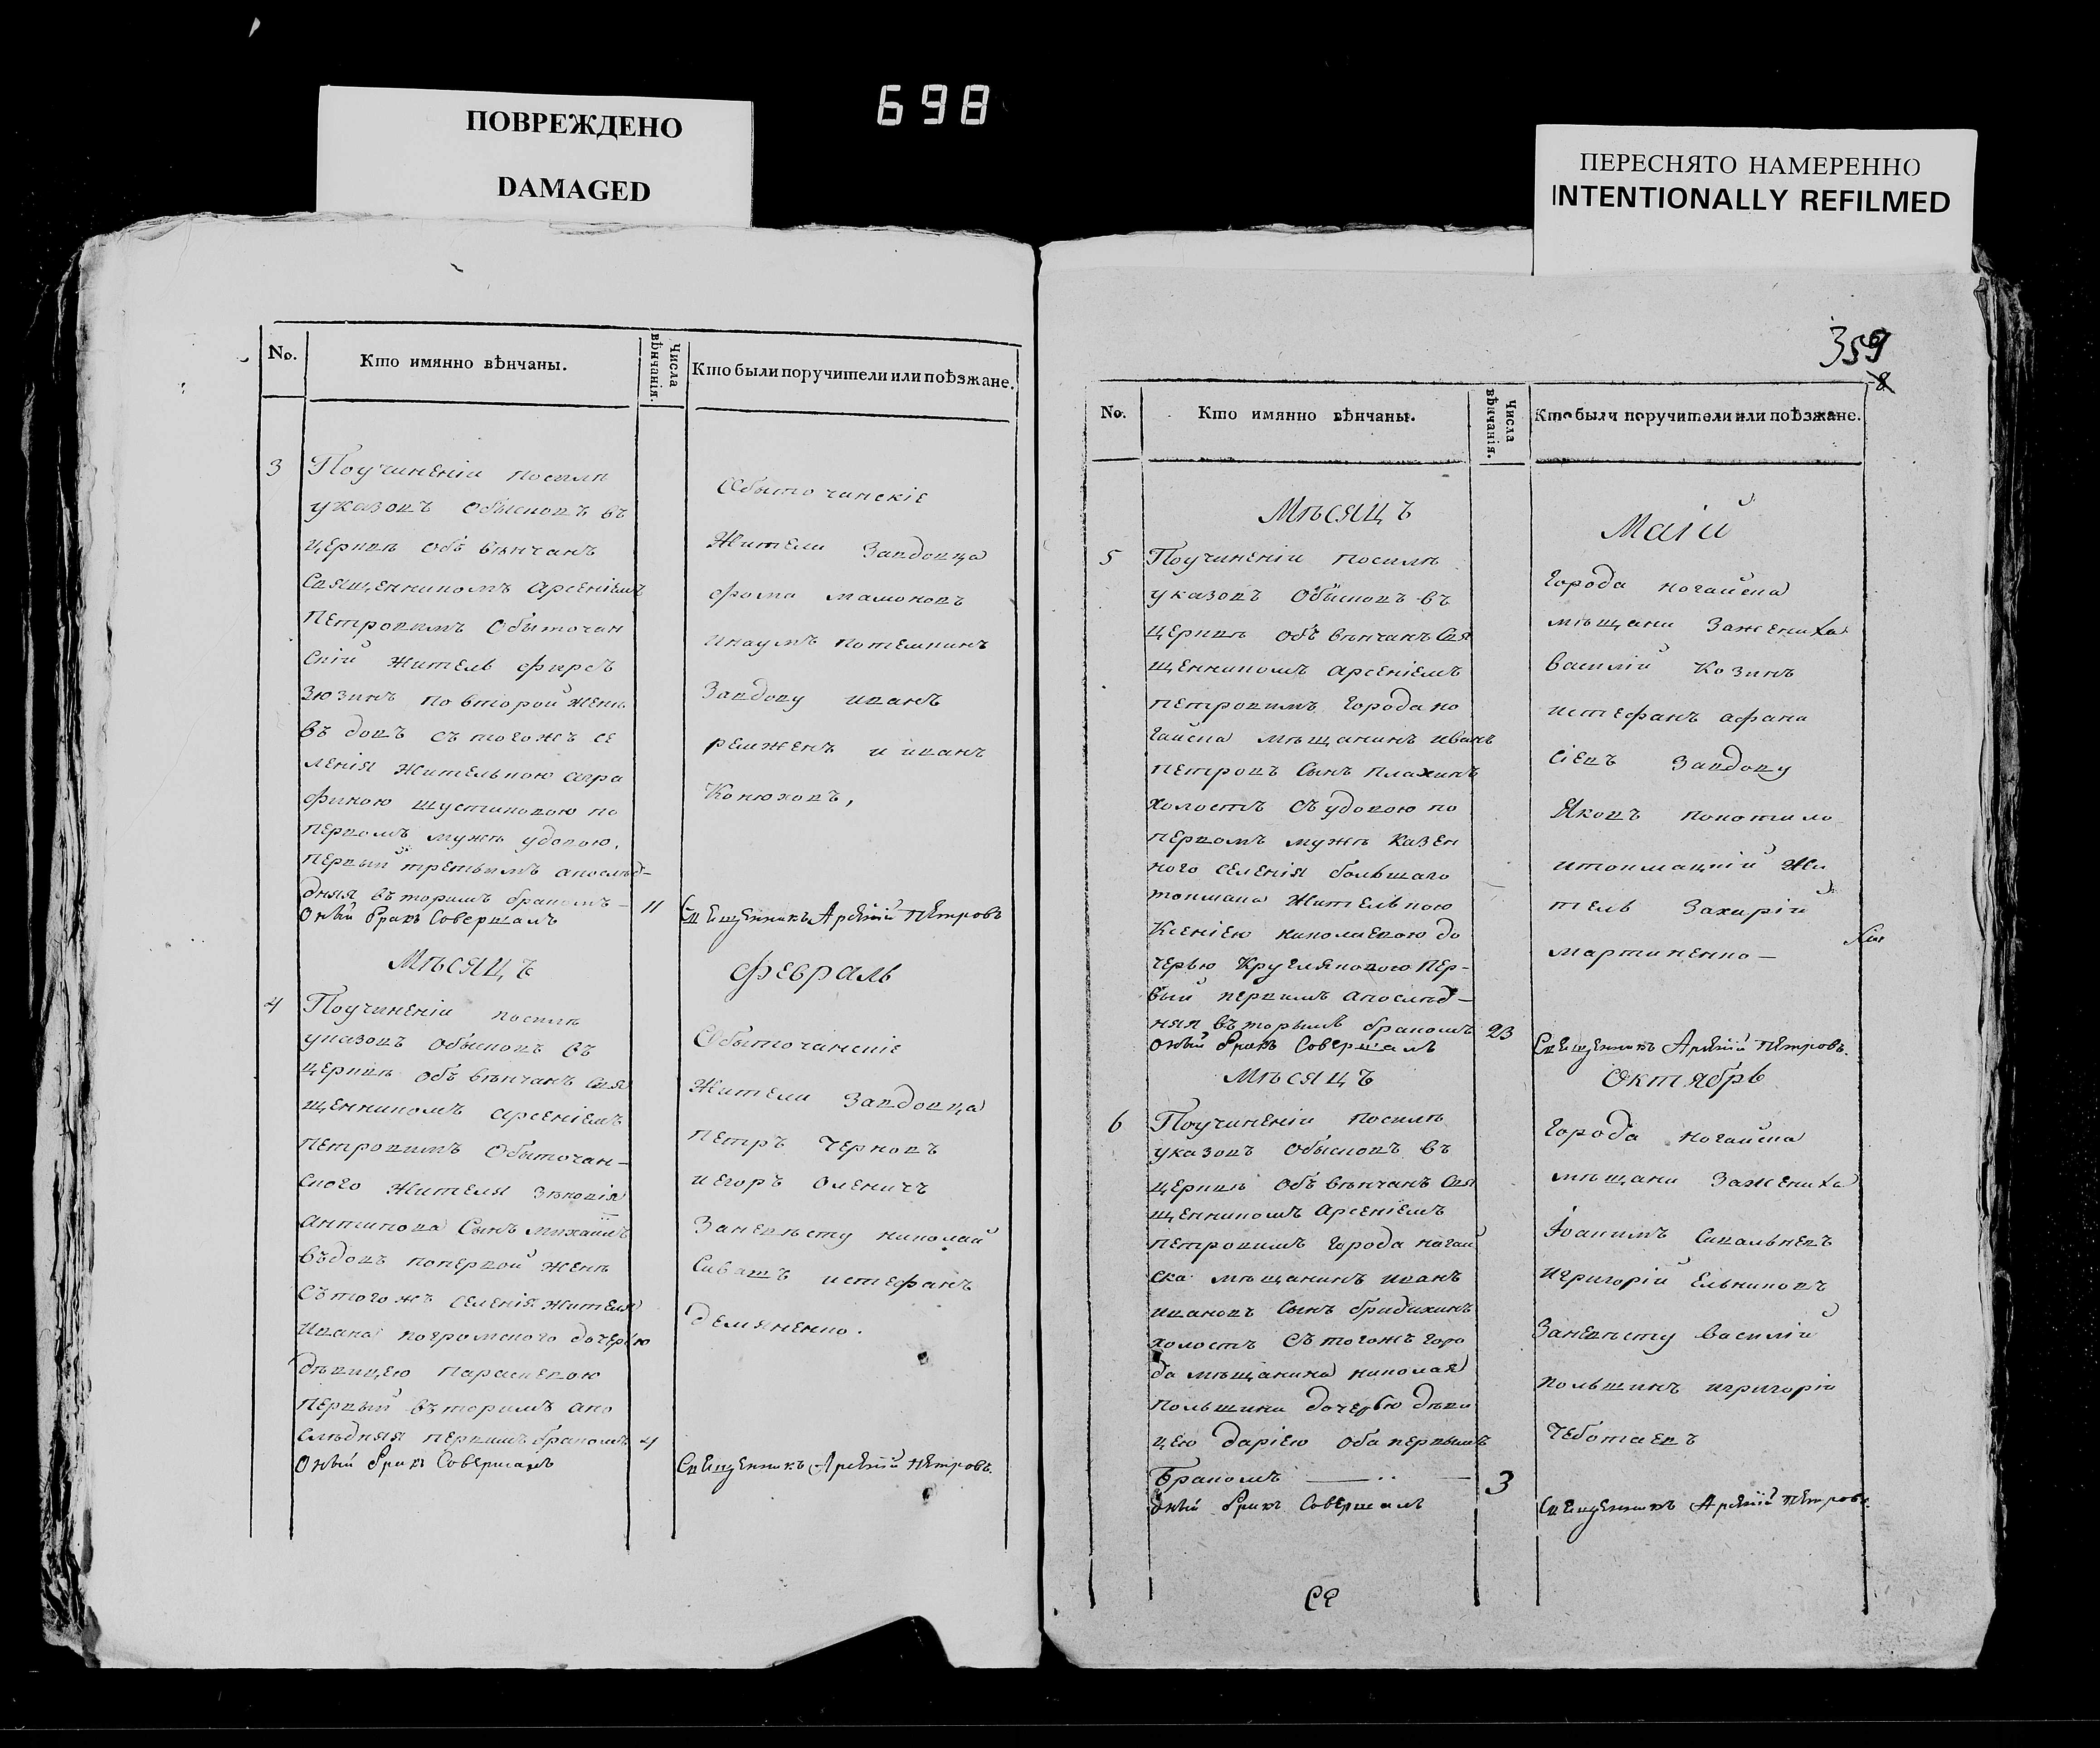 698
ПОВРЕЖДЕНО
DAMAGED
ПЕРЕСНЯТО НАМЕРЕННО
INTENTIONALLY REFILMED
No.
Кто имянно вѣнчаны.
Числа вѣнчанія.
Кто были поручители или поѣзжане.
3
Поучиненіи посилѣ
указовъ Обысковъ въ
церквѣ обвѣнчанъ
Священникомъ Арсеніемъ
Петровимъ Обыточан
скій житель фирсъ
Зюзинъ по второй женѣ
въдовъ стогожъ се
ленія жителькою агра
финою шустиковою по
первомъ мужѣ удовою,
первый третьимъ апослѣд-
дняя въторимъ бракомъ-
Оный бракъ Совершалъ
11
Обыточинскіе
Жители Завдовца
фома мамоновъ
инаумъ потемкинъ
Завдову иванъ
и иванъ
Конюховъ,
Священникъ Арсеній Петровъ
Мѣсяцъ
февраль
4
Поучиненіи посилѣ
указовъ Обысковъ въ
церквѣ обвѣнчанъ Свя
щенникомъ арсеніемъ
петровимъ Обыточан-
ского жителя
антипова Сынъ михаилъ
въдовъ попервой женѣ
стогожъ селенія жителя
ивана погромского дочерью
дѣвицею параскевою
первый въторимъ апо
слѣдняя первимъ бракомъ
Оный бракъ Совершалъ
4
Обыточинскіе
Жители Завдовца
петръ Черновъ
иегоръ
Заневѣсту николай
Сивашъ истефанъ
демяненко.
Священникъ Арсеній Петровъ.
359
8
No.
Кто имянно вѣнчаны.
Числа вѣнчанія.
Кто были поручители или поѣзжане.
Мѣсяцъ
Маій
5
Поучиненіи посилѣ
указовъ Обысковъ въ
церквѣ обвѣнчанъ Свя
щенникомъ арсеніемъ
петровимъ города но
гайска мѣщанинъ иванъ
петровъ Сынъ плахинъ
холостъ съ удовою по
первомъ мужѣ казен
ного селенія большаго
токмака жителькою
Ксеніею николаевою до
черью Кругляковою пер-
вый первимъ апослѣд-
няя въторымъ бракомъ
Оный бракъ Совершалъ
23
Города ногайска
мѣщани Зажениха
василій Козинъ
истефанъ афана
сіевъ Завдову
Яковъ
итокмацкій жи
тель Захарій
мартиненко-
Священникъ Арсеній Петровъ.
Мѣсяцъ
Октябрь
6
Поучиненіи посилѣ
указовъ Обысковъ въ
церквѣ обвѣнчанъ Свя
щенникомъ Арсеніемъ
петровимъ города ногай
ска мѣщанинъ иванъ
ивановъ Сынъ бридихинъ
холостъ стогожъ горо
да мѣщанина николая
польшина дочерью дѣви
цею даріею оба первымъ
бракомъ
Оный бракъ Совершалъ
3
Города ногайска
мѣщани Зажениха
Іоакимъ
игригорій Ельниковъ
Заневѣсту василій
польшинъ игригорій
Чеботаевъ
Священникъ Арсеній Петровъ.